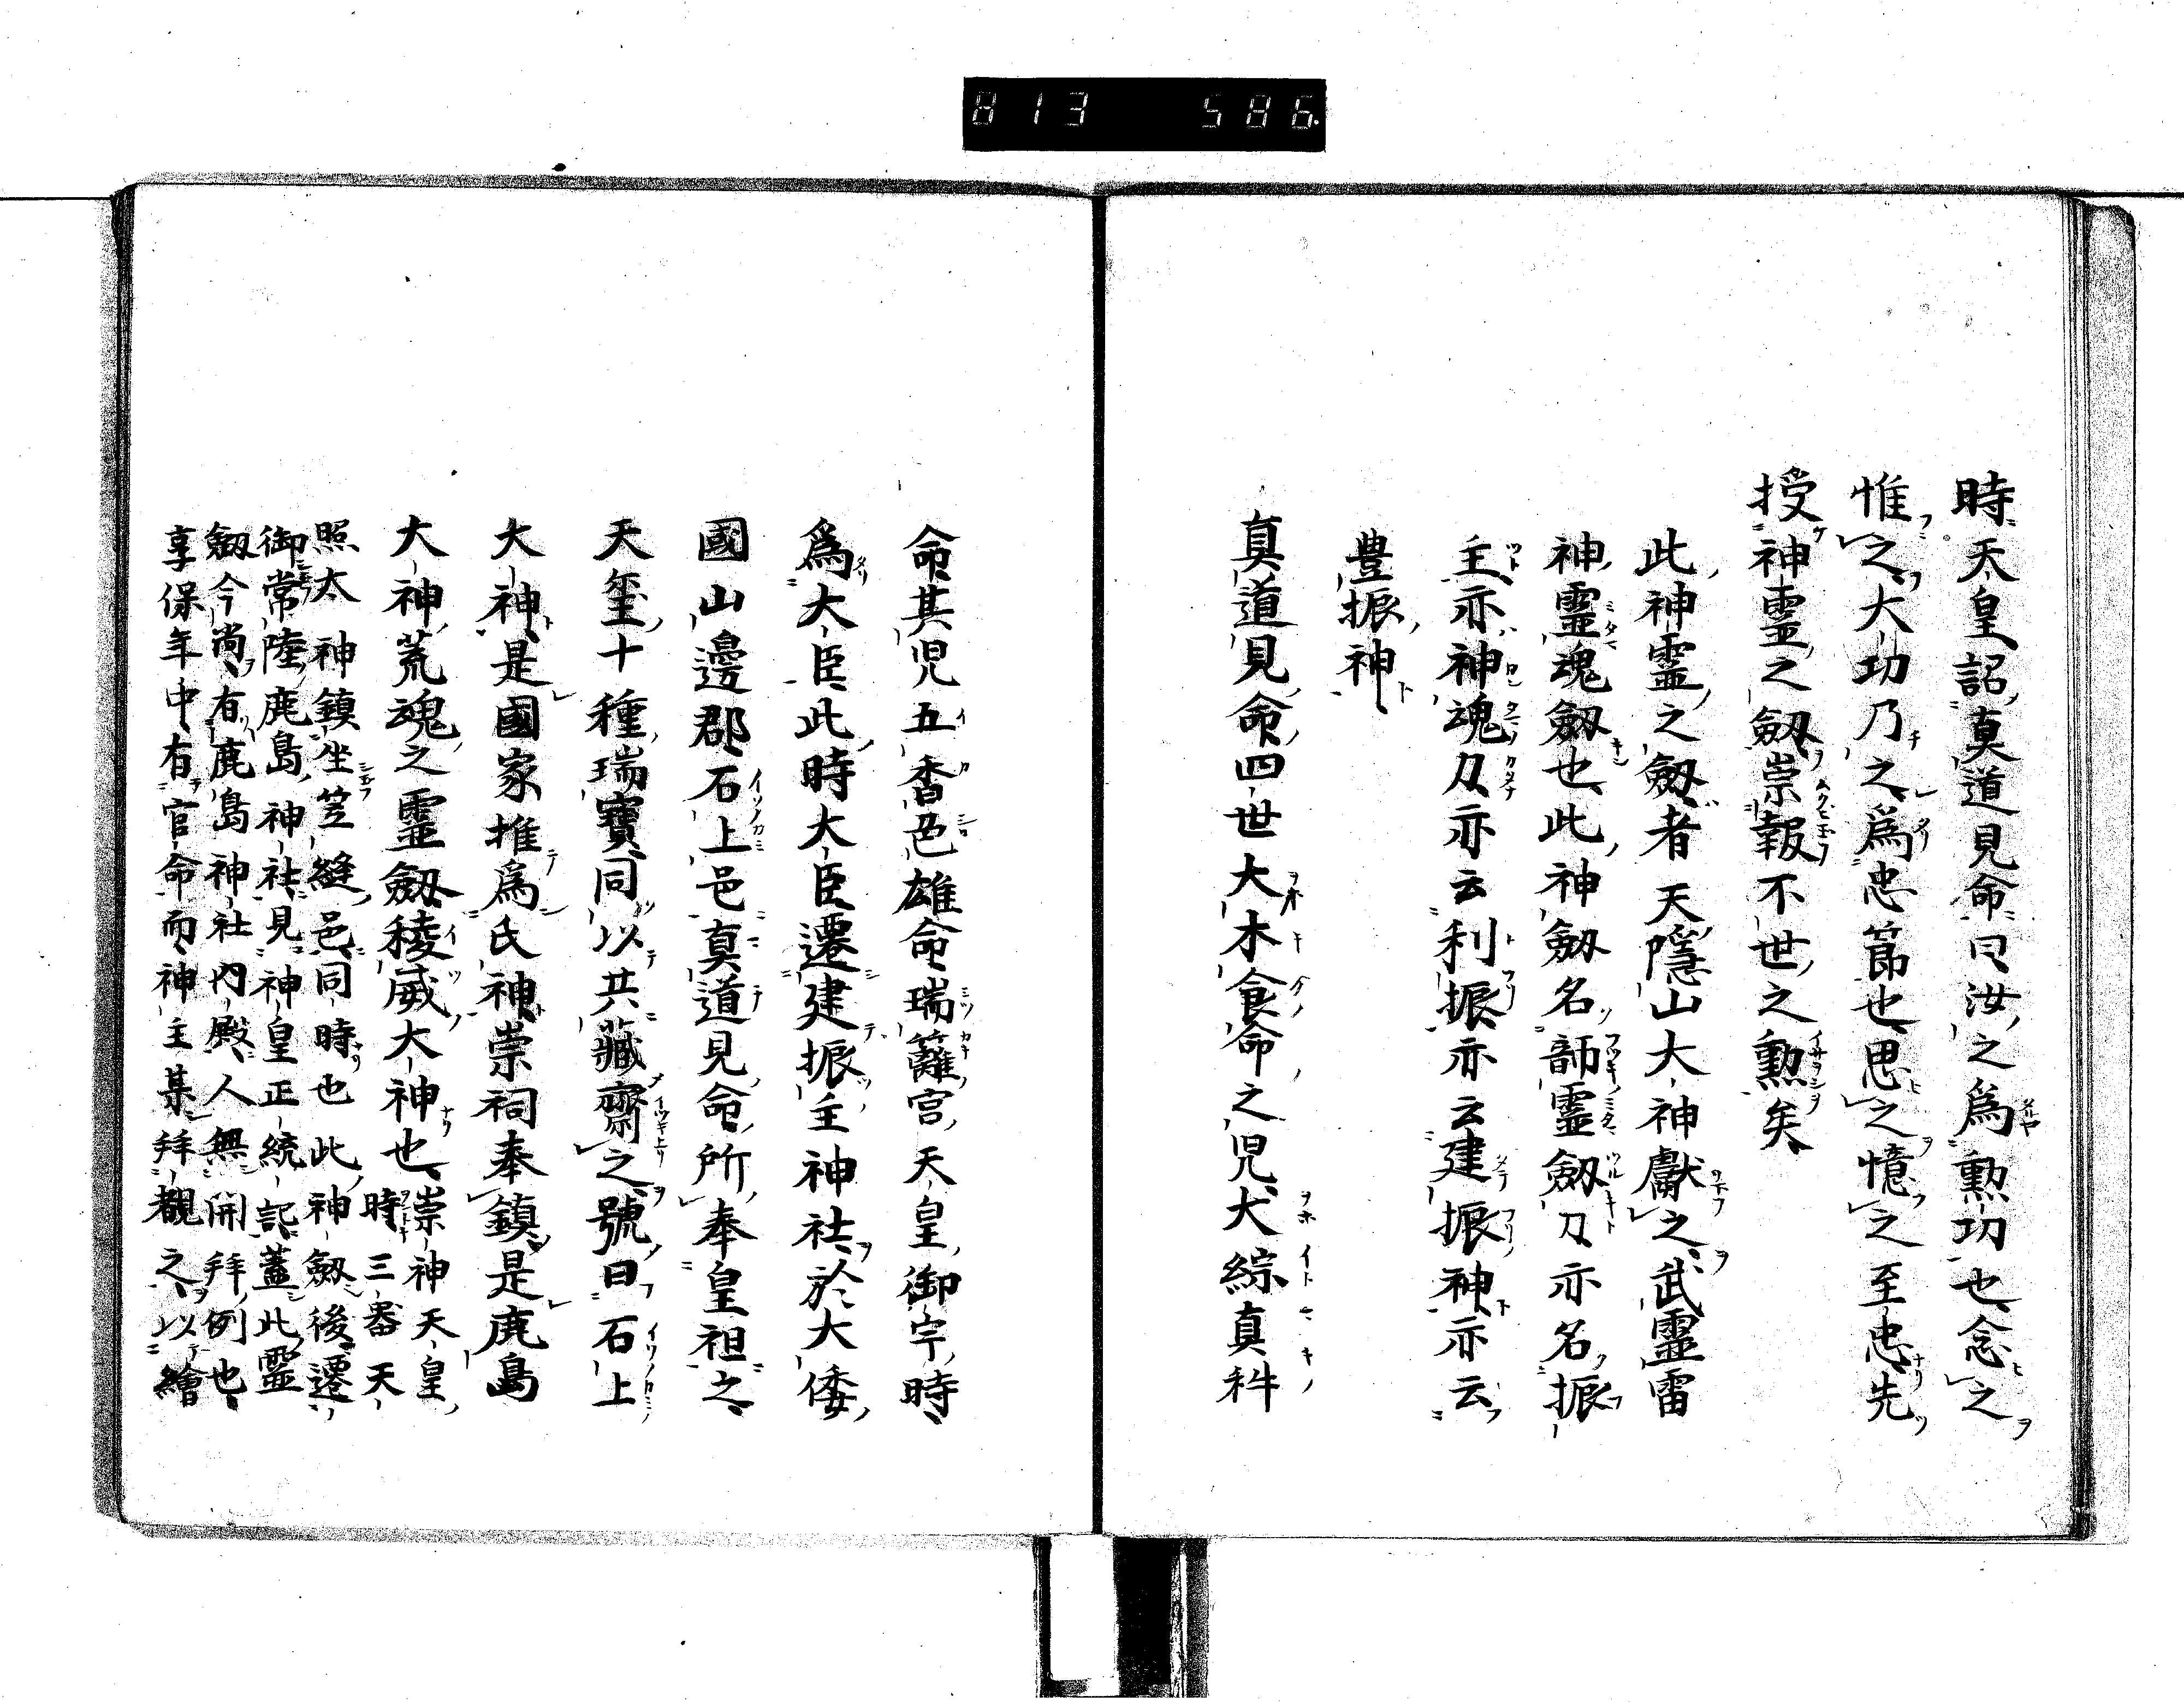 813 586
時天皇詔真道見命曰汝之為勲功也念之
惟之大功乃之為忠節也思之憶之至忠先
授神霊之劔崇報不世之勲矣
此神霊之劔者天隠山大神獻之武霊雷
神霊魂劔也此神劔名韴霊劔刀亦名振
主亦神魂刀亦云利振亦云建振神亦云
豊振神
真道見命四世大木食命之児大綜真
命其児五香色雄命瑞籬宮天皇御宇時
為大臣此時大臣遷建振主神社於大倭
國山邊郡石上邑真道見命所奉皇祖之
天璽十種瑞寶同以共藏齋之號曰石上
大神是國家推為氏神崇祠奉鎮是鹿島
大神荒魂之霊劔稜威大神也崇神天皇
時三器天
照太神鎮坐笠縫邑同時也此神劔後遷
御常陸鹿島神社見神皇正統記蓋此靈
劔今尚有鹿島神社内殿人無開拜例也
享保年中有官命而神主某拜覯之以繪